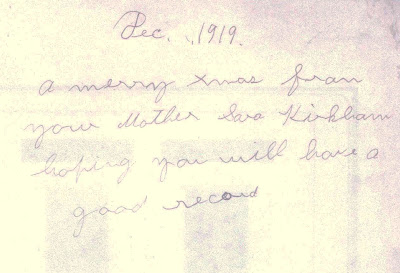 Dec. 1919.
a merry xmas from
your Mother Sara Kirkham
hoping you will have a
good record